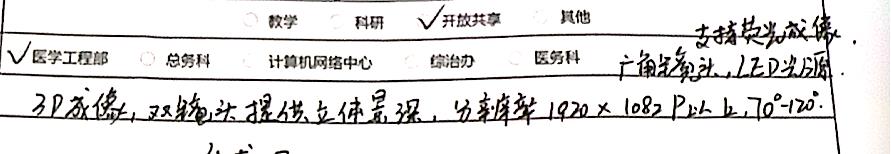 教学 科研 ✓开放共享 其他
支持荧光成像.
✓医学工程部 总务科 计算机网络中心 综治办 医务科
广角镜头, LED光源.
3D成像, 双镜头提供立体景深, 分辨率 1920 × 1082 70°-120°.